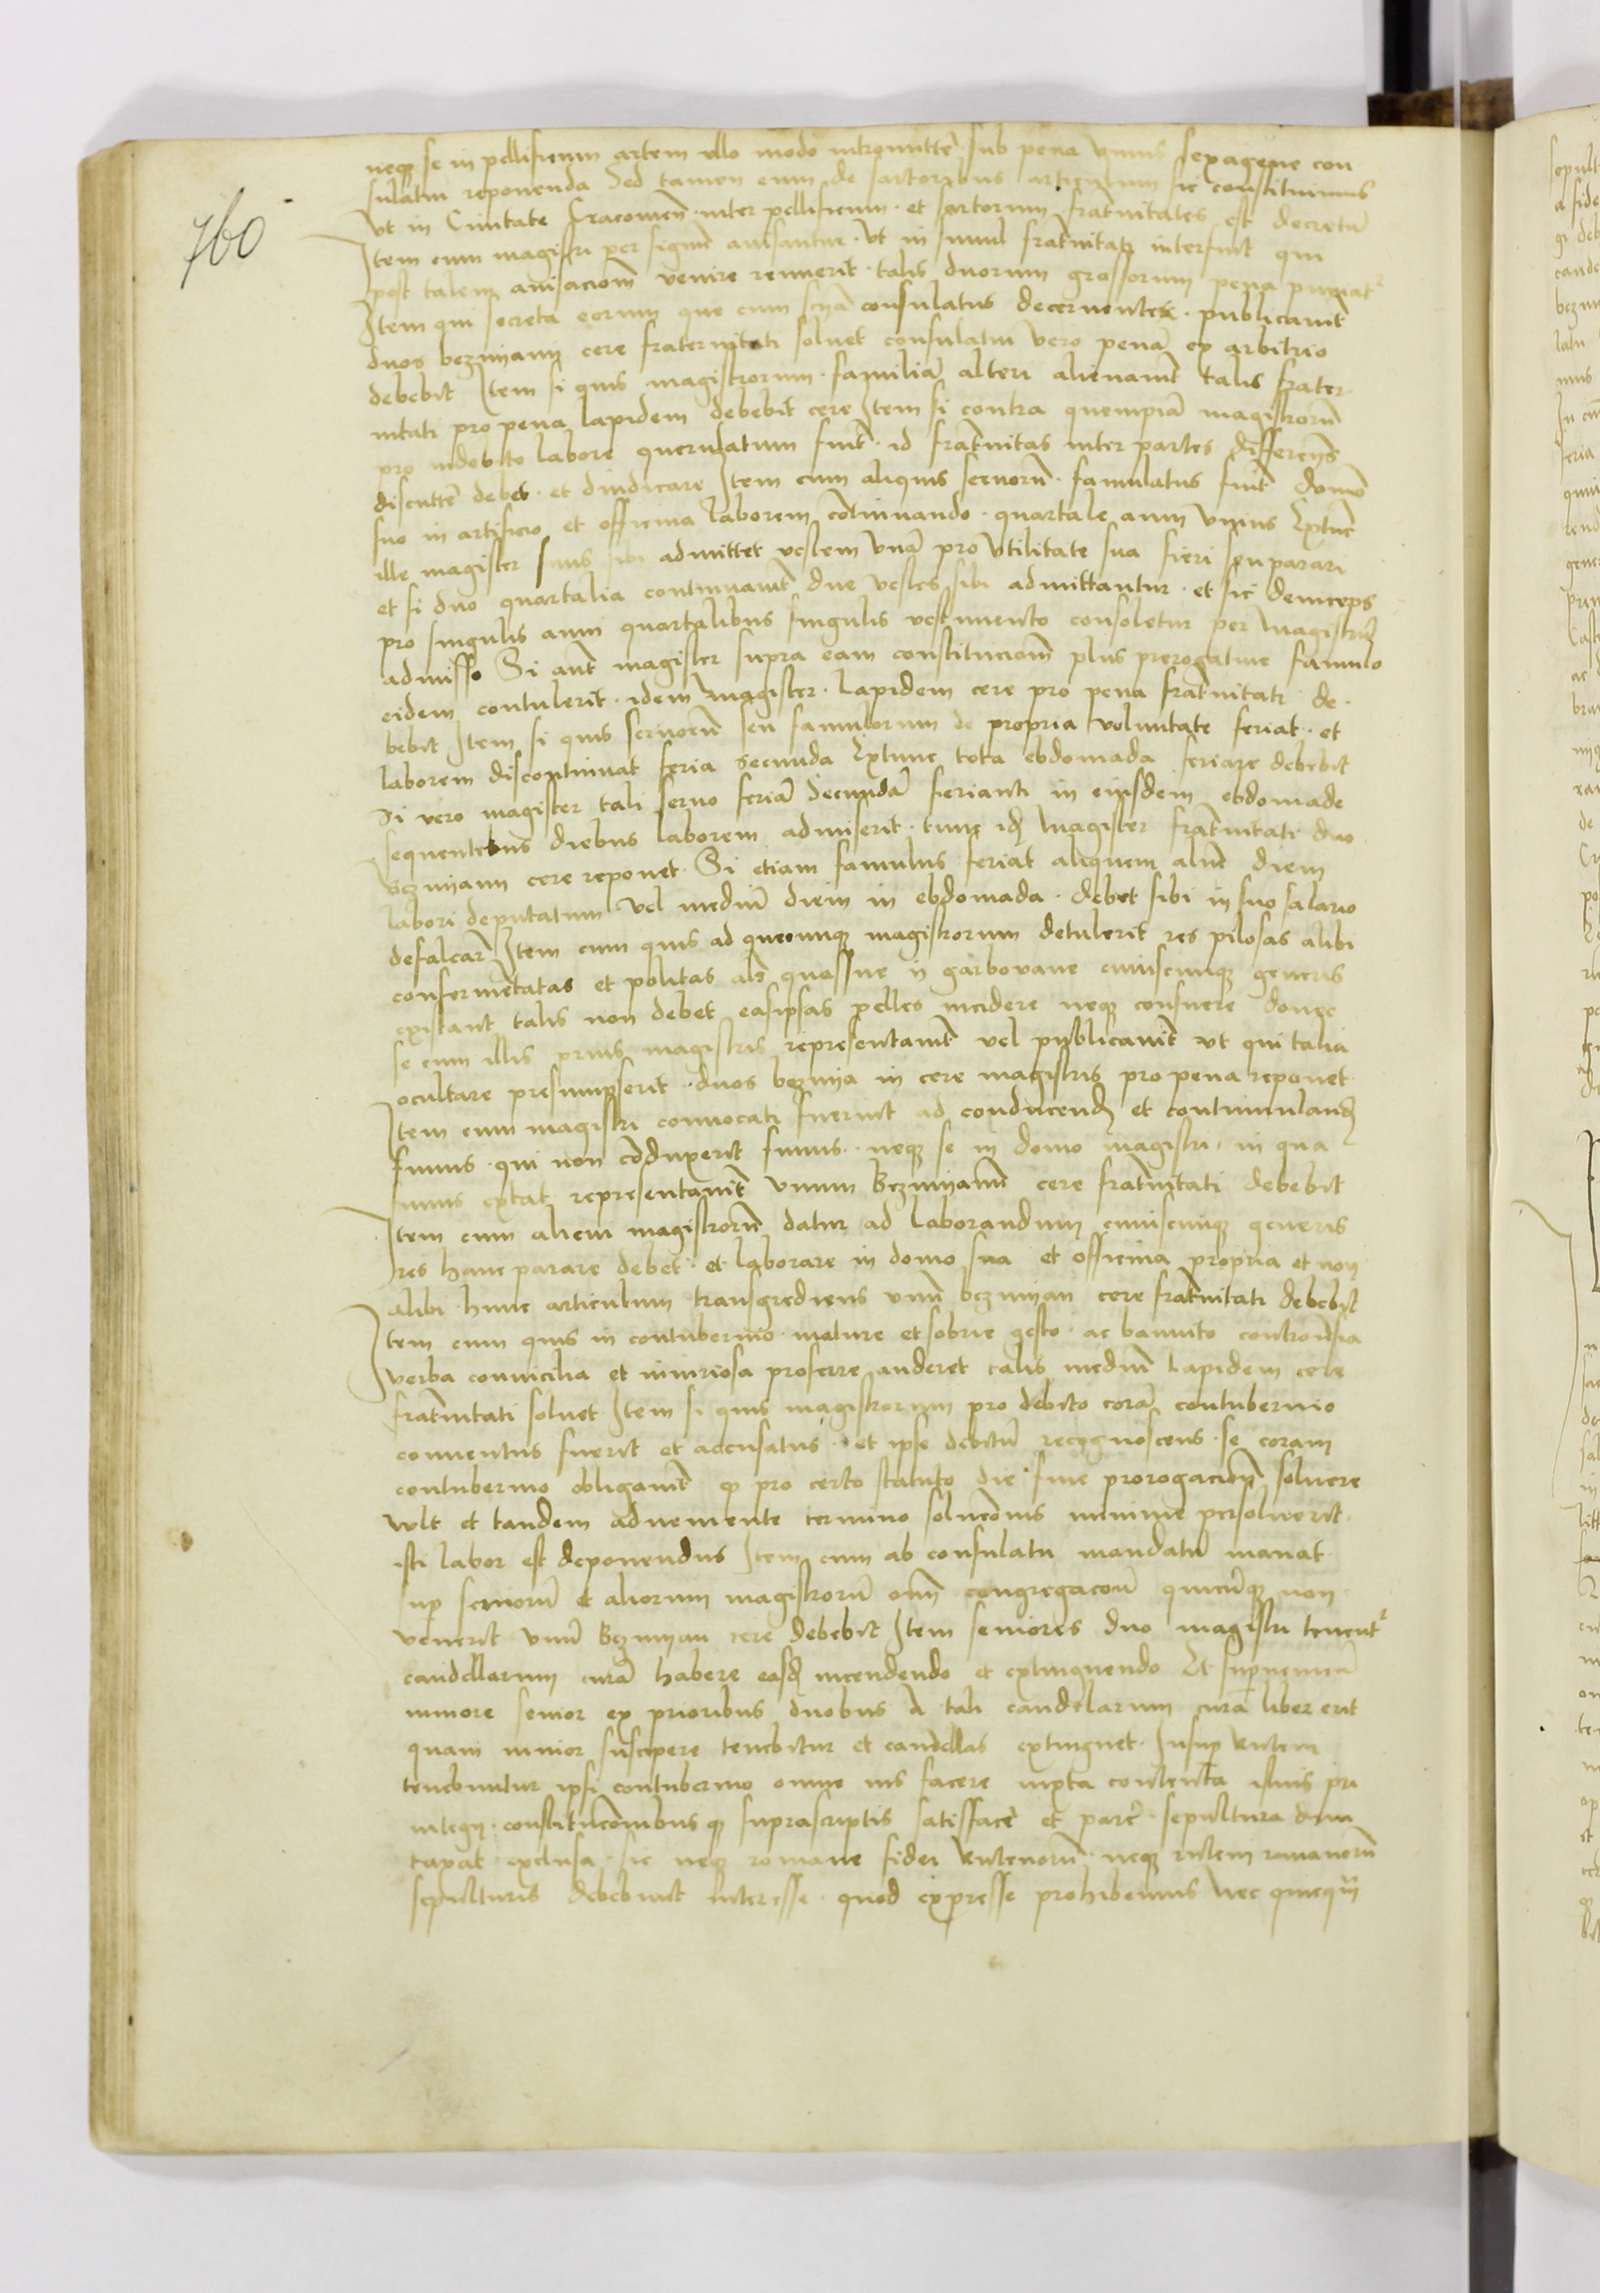 neq se in pellificum artem ullo modo intromitte sub pena unius sexagene con
sulatui reponenda Sed tamen cum de sartoribus articulum sic constituimus
Ut in Civitate Cracovien inter pellificum et sartorum fratnitates est decretu
760
Item cum magistri per signum avisantur Ut in simul fratnitatz interfint qui
post talem avisaciom venire renuerit talis duorum grossorum pena puniat
Item qui secreta eorum que cum consulatus decernentes publicavit
duos bezmyany cere fraternitati solvet consulatui vero pena ex arbitrio
debebit Item si quis magistrorum familia alteri alienavit talis frater
nitati pro pena lapidem debebit cere Item si contra quempia magistroru
pro indebito labore querulatum fuit id fratnitas inter partes differens
discutte debet et diiudicare Item cum aliquis servoru famulatus fuit domo
suo in artificio et officina laborem continuando quartale anni unius Extuc
ille magister suus sibi admittet vestem una pro utilitate sua fieri seu parari
et si duo quartalia continuavit due vestes sibi admittantur et sic deinceps
pro singulis anni quartalibus singulis vestimento consoletur per magistru
admisso Si aut magister supra eam constituciom plus prerogative famulo
eidem contulerit idem magister lapidem cere pro pena fratnitati de
bebit Item si quis servoru seu famulorum de propria voluntate feriat et
laborem discontinuat feria secunda Extunc tota ebdomada feriare debebit
Si vero magister tali servo feria Secunda ferianti in eiusdem ebdomade
sequentibus diebus laborem admiserit tunc id magister fratnitati duo
bezmyany cere reponet Si etiam famulus feriat aliquem aliu diem
labori deputatum vel mediu diem in ebdomada debet sibi in suo salario
defalcar Item cum quis ad quecunq magistrorum detulerit res pilosas alibi
confermetatas et politas als quassne y garbovane cuiuscunq generis
existant talis non debet easipsas pelles incidere neq consuere donec
se cum illis prius magistris representavit vel publicavit ut qui talia
ocultare presumpserit duos bezmya in cere magistris pro pena reponet
Item cum magistri convocati fuerint ad conducend et contumuland
funus qui non conduxerit funus neq se in domo magistri in qua
funus extat representavit Unum Bezmyam cere fratnitati debebit
Item cum alicui magistroru datur ad laborandum cuiuscunq generis
res hanc parare debet et laborare in domo sua et officina propria et non
alibi hunc articulum transgrediens unu bezmyan cere fratnitati debebit
Item cum quis in contubernio mature et sobrie gesto ac bannito
verba convicilia et iniuriosa proferre auderet talis mediu lapidem cere
fratnitati solvet Item si quis magistrorum pro debito cora contubernio
conventus fuerit et accusatus et ipse debitu recognoscens se coram
contubernio obligavit q pro certo statuto die sine prorogacion solvere
vult et tandem adveniente termino soluconis minime persolverit
isti labor est deponendus Item cum ab consulatu mandatu manat
sup servoru et aliorum magistroru om congregacou quicuq non
venerit unu bezmyan cere debebit Item seniores duo magistri tenent
candellarum cura habere easd incendendo et extinguendo Et supveniem
iuniore senior ex prioribus duobus A tali candelarum cura liber erit
quam iunior suscipere tenebitur et candellas extinguet Insup Ruteni
tenebuntur ipsi contubernio omne ius facere iuxta contenta istius pri
vilegy constituconibus q suprascriptis satisface et pare sepultura dum
taxat exclusa sic neq romane fidei Rutenoru neq ruteni romanoru
sepulturis debebunt interesse quod expresse prohibemus Nec quicq